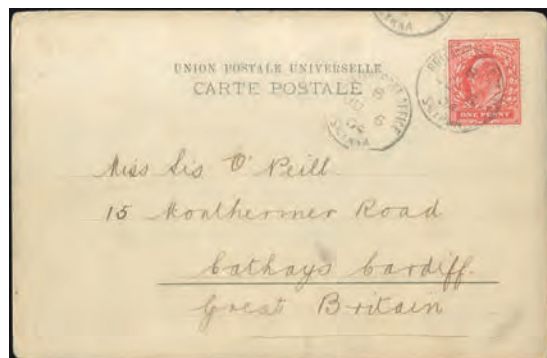 UNION POSTALE UNIVERSELLE
CARTE POSTALE
ONE PENNY
POST OFFICE
SMYRNA
Miss Sis O'Neill
15 Monthermer Road
Cathays Cardiff.
Great Britain